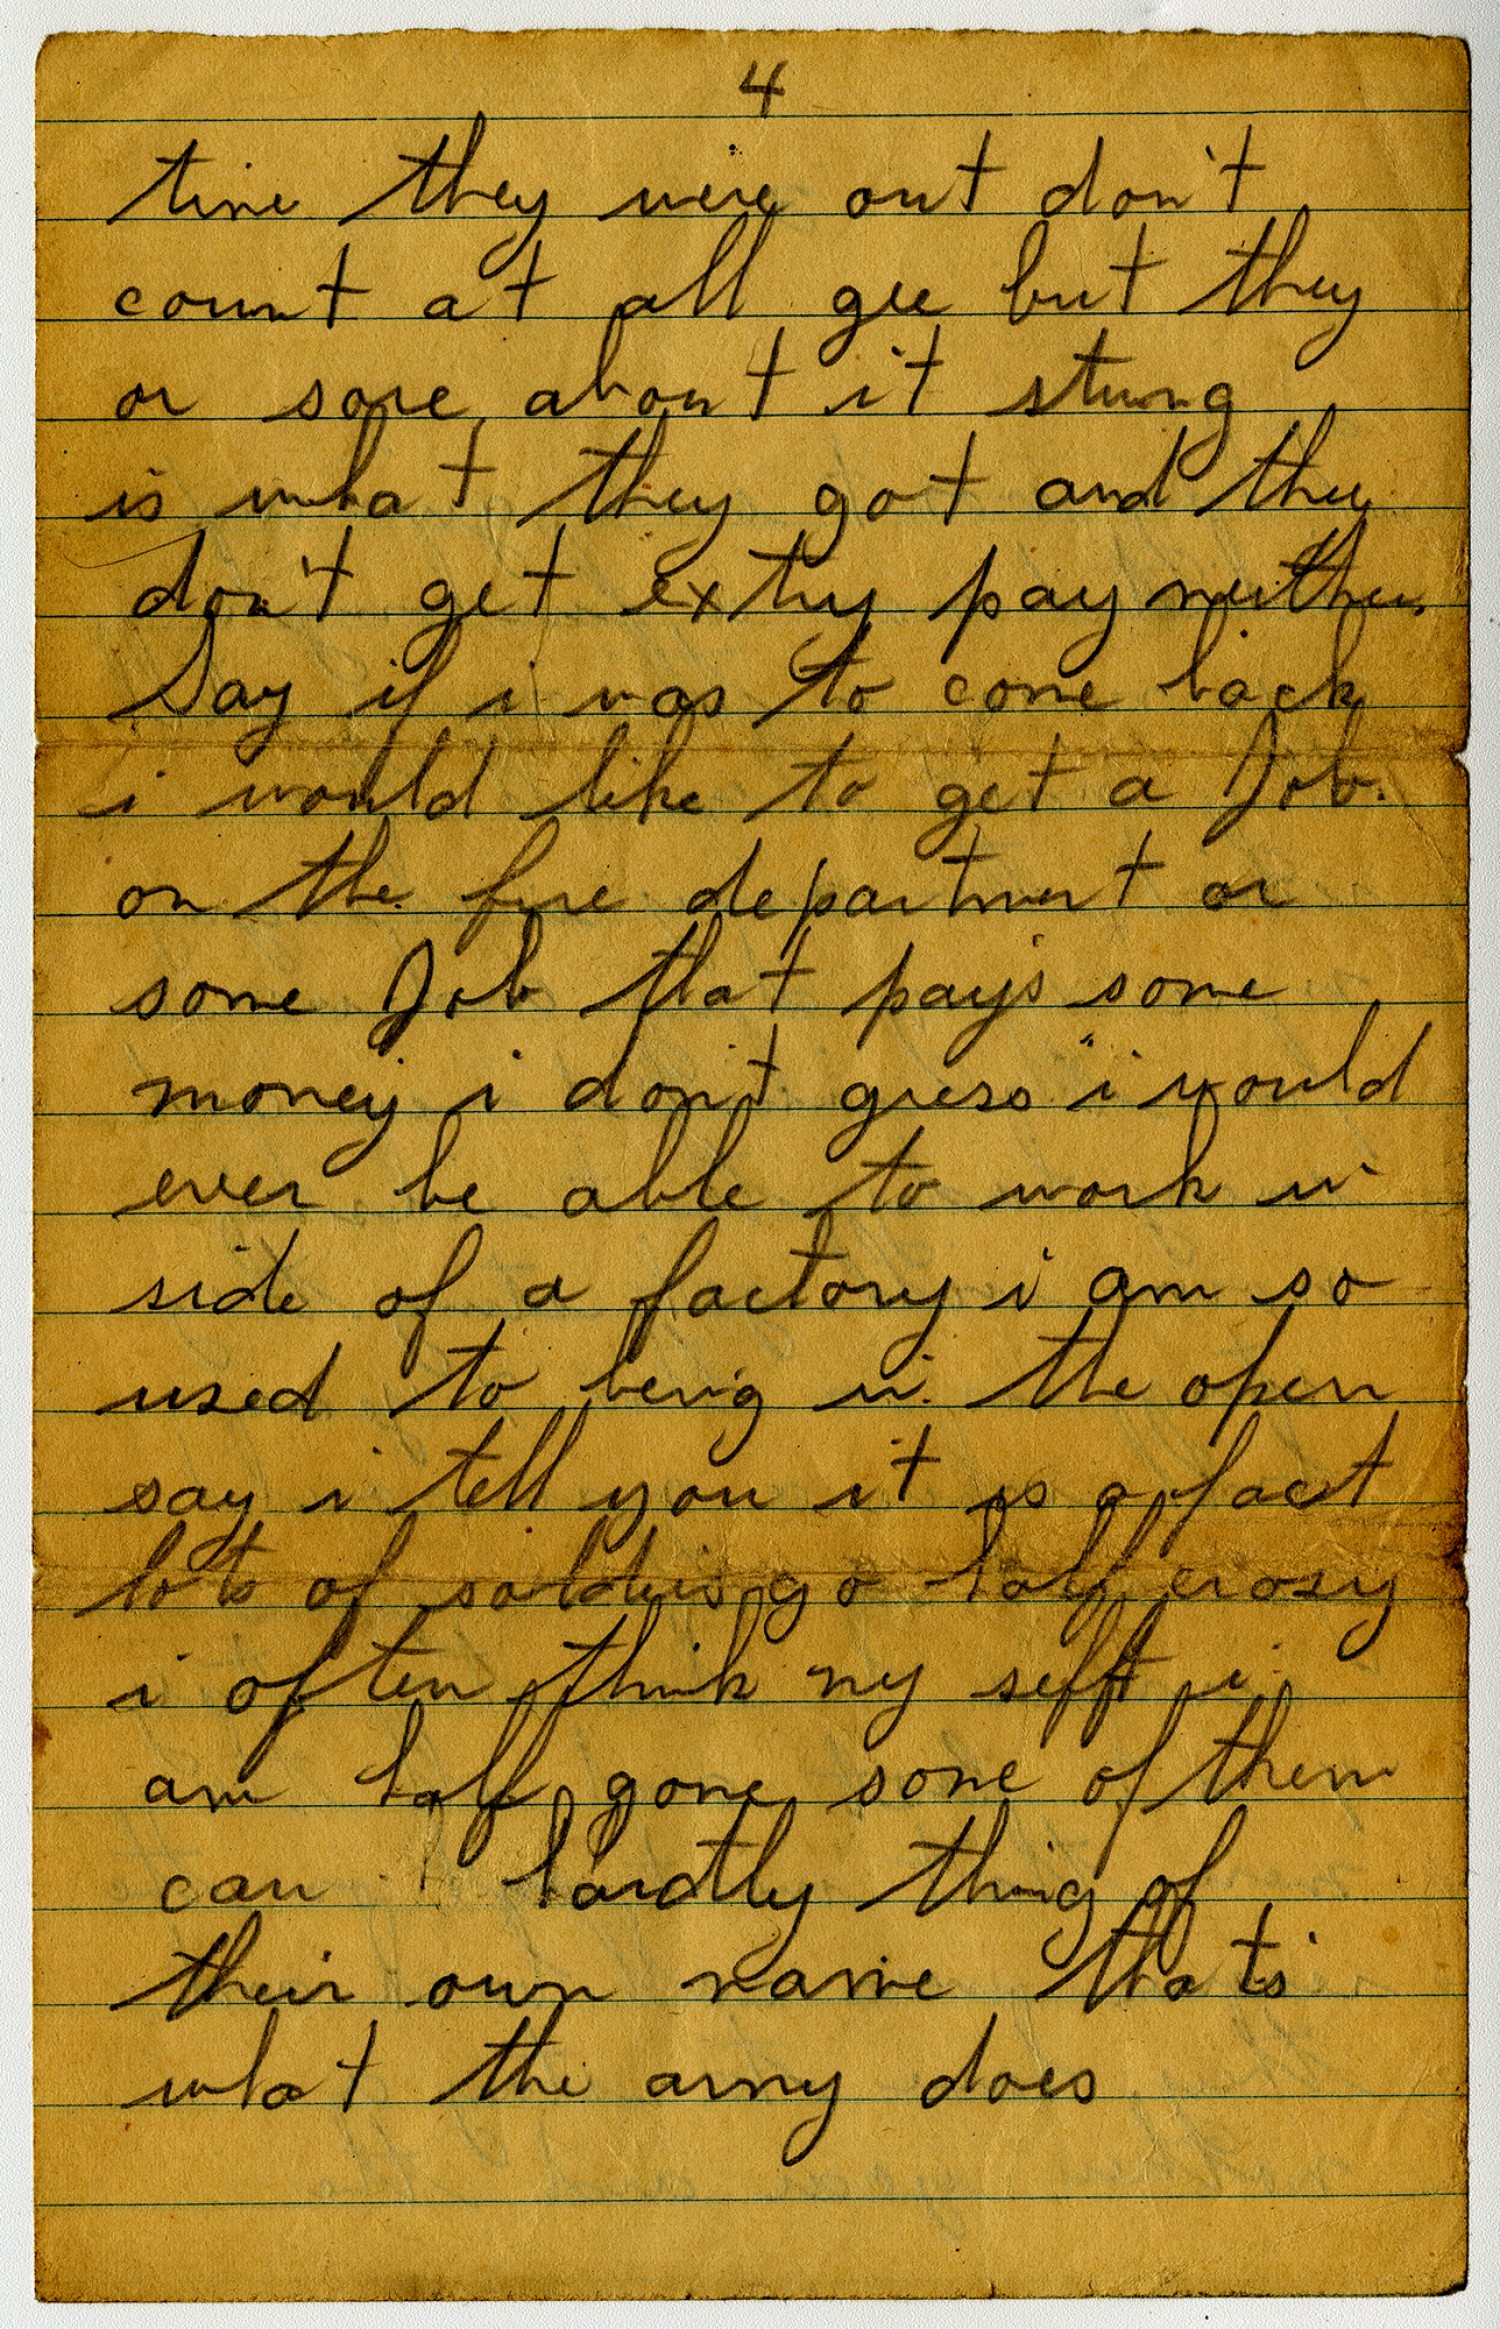 4
time they were out don't
count at all gee but they
or sore about it stung
is what they got and they
don't get extry pay neither
Say if i was to come back
i would like to get a Job.
on the fire department or
some Job that pay's some
money i don't guess i would
ever be able to work in
side of a factory i am so
used to being in the open
say i tell you it is a fact
lots of soldiers go half crazy
i often think my selft i
am half gone some of them
can hardtly thing of
their own name that's
what the army does